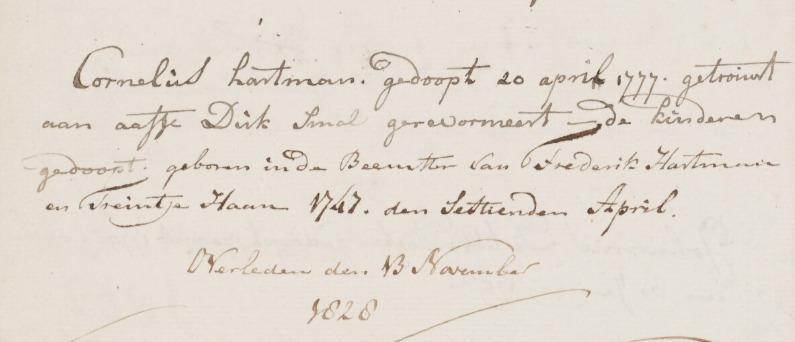 Cornelius hartman. gedoopt 20 april 1777. getrouwt
aan aafje Dirk Smal gerevormeert de kinderen
gedoopt. geboren in de Beemster van Frederik Hartman
en Treintje Haan 1747. den Settienden April.
Overleden den 13 November
1828